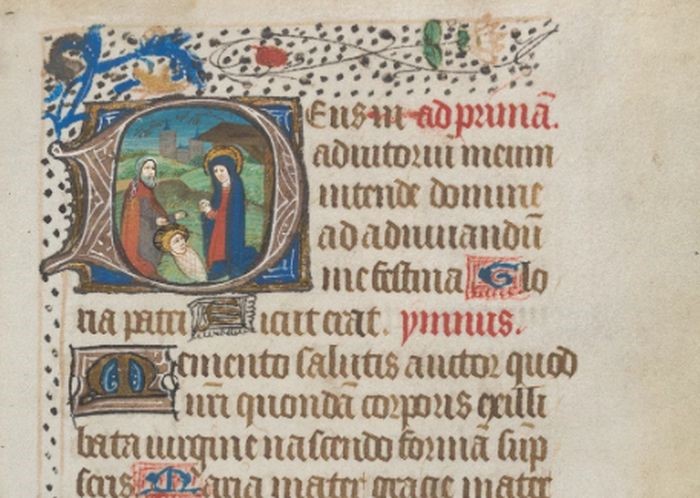 Deus in ad primã.
adiutoriũ meum
intende domine
ad adiuuandũ
me festina Glo
ria patri Sicut erat. ymnus.
Memento salutis auctor quod
nr̃i quondã corporis ex illi
bata uirgine nascendo formã sũp
seris Maria mater gracie mater